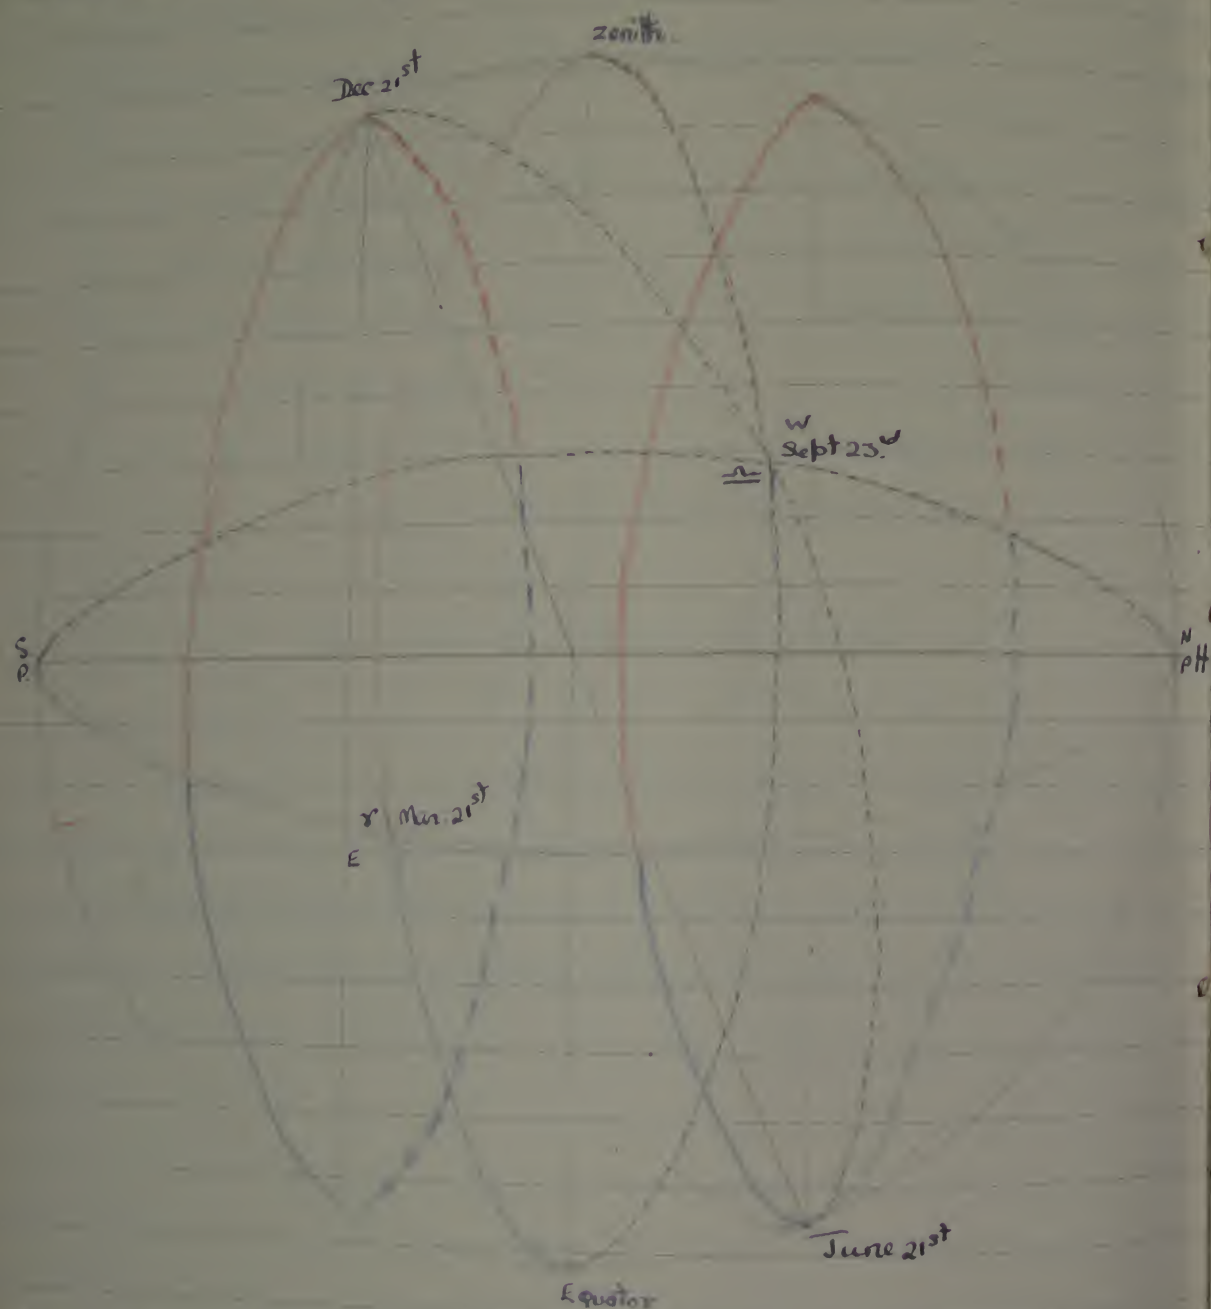 Zenith
Dec 21st
W
Sept 23.d
♎
S
P.
N
PH
♈ Mar. 21st
E
June 21st
Equator